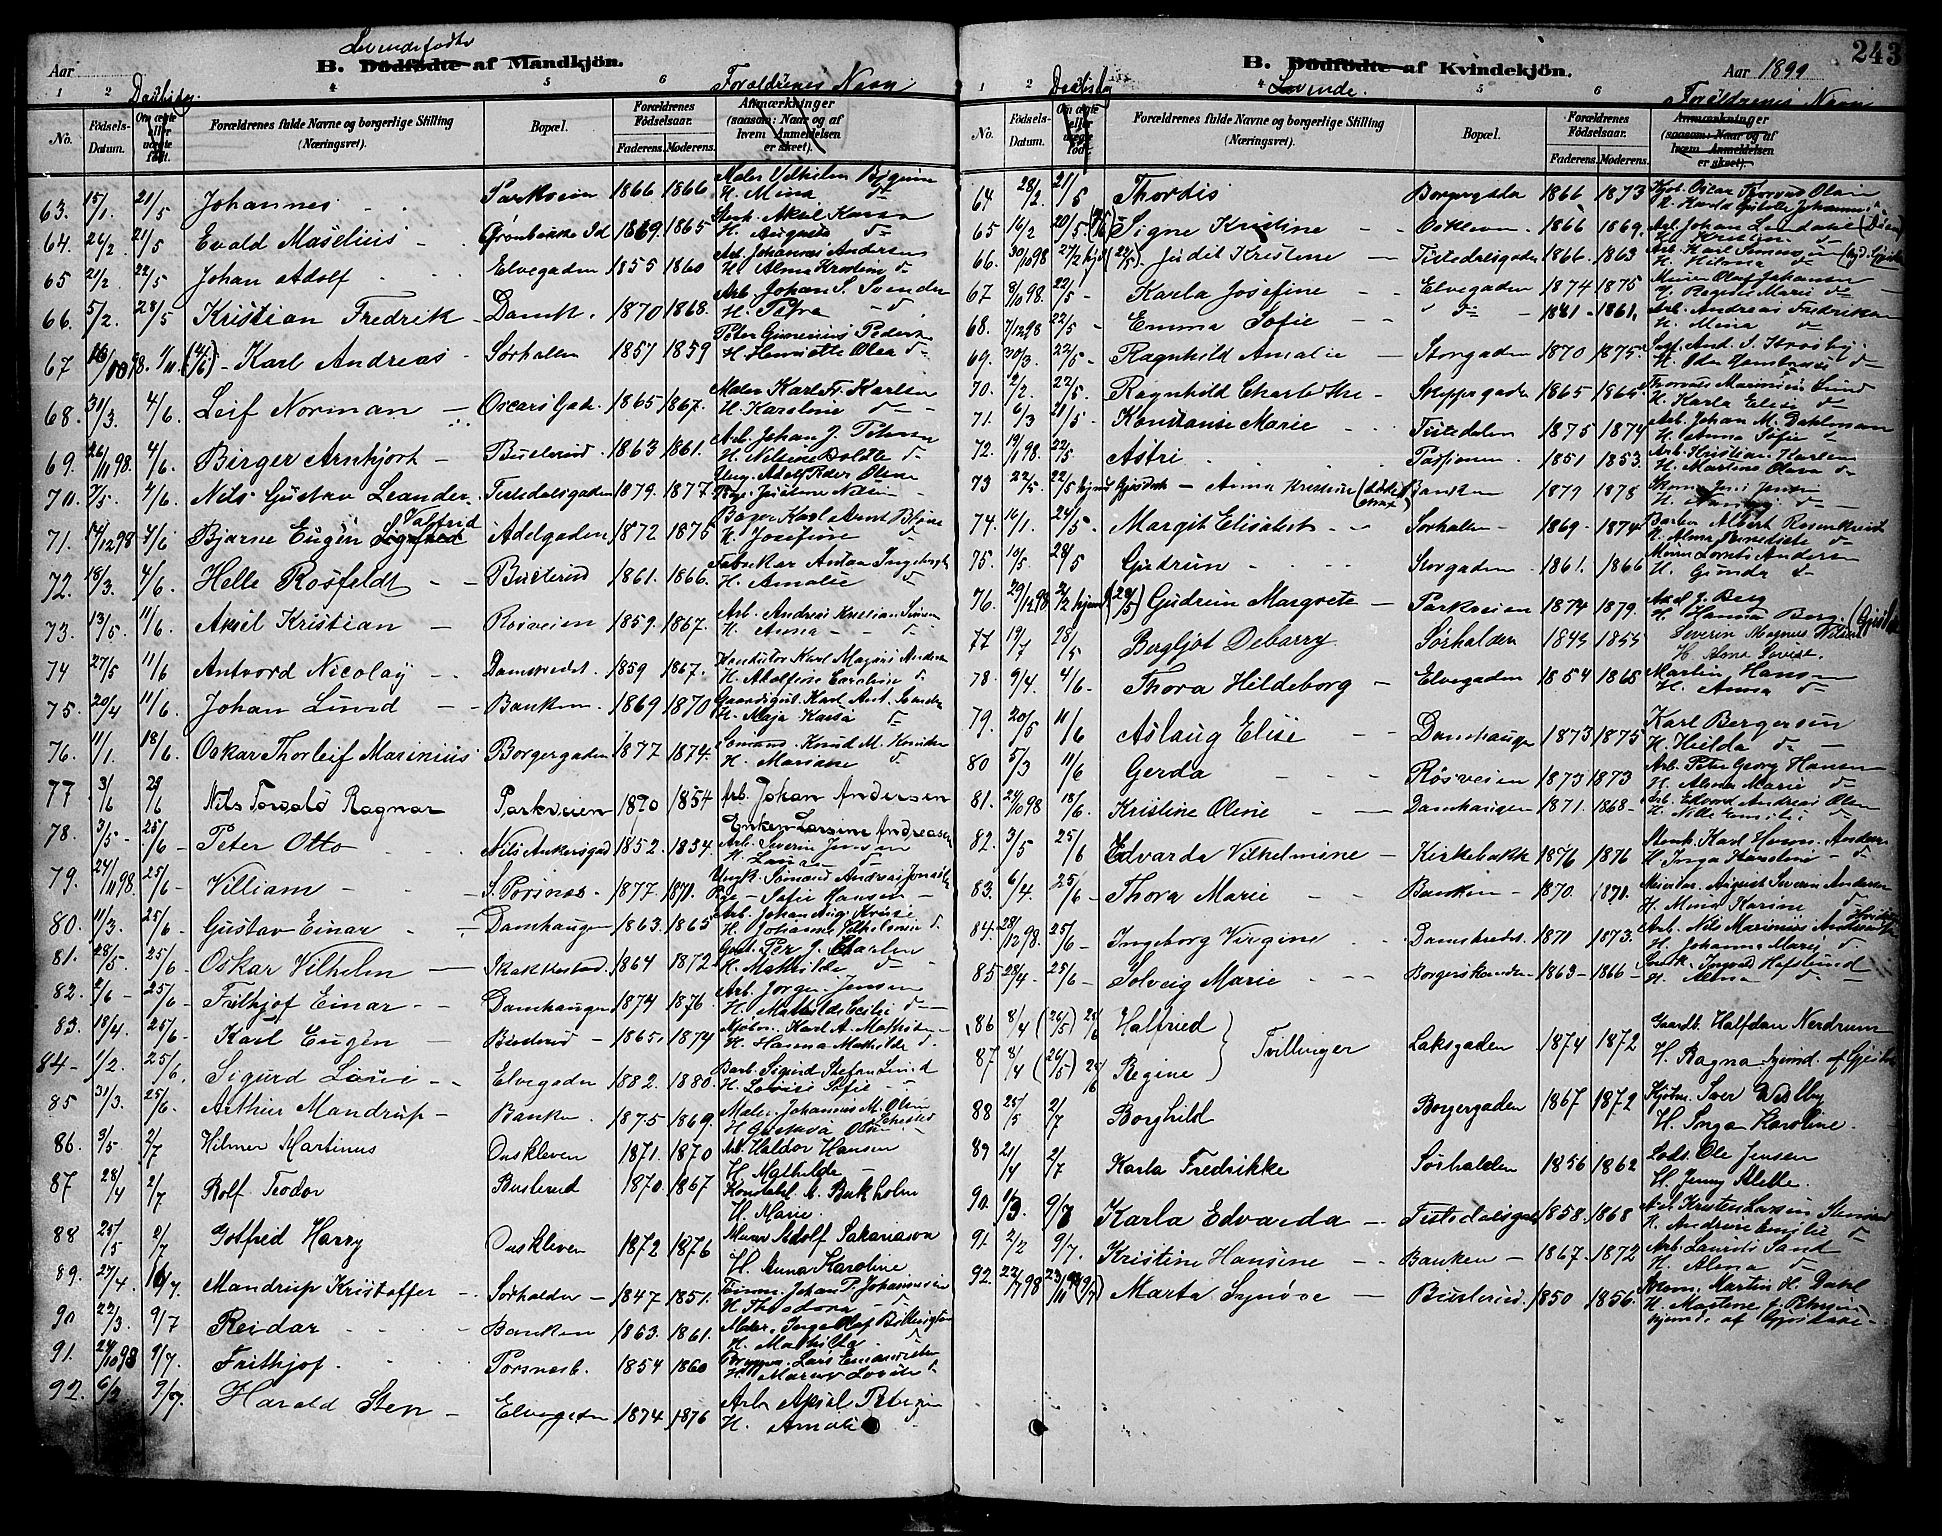 Levendefødte
Aar
B. Dödfödte af Mandkjön.
Daabsdag.
Forældrenes Navn
1 2 4 5 6
No. Födsels-Datum. Om ægte eller uægte født. Forældrenes fulde Navne og borgerlige Stilling (Næringsvei). Bopæl. Forældrenes Födselsaar. Faderens. Moderens. Anmærkninger (saasom: Naar og af hvem Anmeldelsen er skeet).
63. 15/1. 21/5 Johannes Parkveien 1866 1866 Maler Vilhelm
H. Mina do
64. 26/2 21/5 Evald Maselius Grønbakke 1869. 1865 Aksel
H. Augusta do
65 21/2. 22/5 Johan Adolf Elvegaden 1855 1860 Arb. Johannes Andersen
H. Alma Kristine do
66. 5/2. 28/5 Kristian Fredrik Damh. 1870 1868. Arb. Johan S. Svendsen
H. Petra do
67 16/10 98. 1/11 (4/6) Karl Andreas Sørhalden 1857 1859 Peter Gunerius Pedersen
H. Henriette Olea do
68. 31/3. 4/6. Leif Norman Oscars Gad. 1865 1867. Maler Karl Fr. Karlsen
H. Karoline do
69. 26/11 98. 4/6. Birger Arnhjort Busterud 1863 1861. Arb. Johan J. Petersen
H. Nilsine Boldte do
70. 7/5. 4/6. Nils Gustav Leander. Tistedalsgaden 1879. 1877 Ung. Adolf Olsen
Pige Justine Nilsen
71. 14/12 98 4/6 Bjarne Eugen Sigfred Valfrid Adelgaden 1872 1876 Bager Karl Arnt
H. Josefine do
72. 18/3. 4/6. Helle Rosfeldt Busterud 1861. 1866. Fabrikar Anton Ingebrigts
H. Amalie do
73. 13/5. 11/6. Aksel Kristian Rosveien 1859. 1867. Arb. Andreas Kristian Simen
H. Anna do
74 27/5 11/6 Antvord Nicolay Damstredet 1859 1867. Konduktør Karl Magnus Andersen
H. Adolfine Caroline do
75. 20/4 11/6. Johan Lund Banken 1869 1870 Gaardsgut. Karl Ant. Svendsen
H. Maja Kaisa do
76. 11/1. 18/6. Oskar Thorleif Marinius Borgergaden 1877 1874. Sømand. Knud M.
H. Mariane do
77 3/6 29/6 Nils Torvald Ragnar Parkveien 1870 1854 Arb. Johan Andersen
Enken Larsine Andreasen
78. 3/5 25/6 Peter Otto Nils Ankersgad 1852. 1854. Arb. Severin Jensen
H. Lina do
79. 24/11 98. 25/6 Villiam S. Torsnes. 1877 1871. Ungk. Sømand Andreas
Pige Sofie Hansen
80. 11/3. 25/6 Gustav Einar Damhaugen 1863. 1865 Arb. Johan Aug. Kruse
H. Johanne Vilhelmine do
81. 28/5. 25/6 Oskar Vilhelm Skakkestad. 1864 1872 Per J. Charlsen
H. Mathilde do
82. 2/6 25/6 Frithjof Einar Damhaugen 1874 1876. Arb. Jørgen Jensen
H. Mathilde Cecilie do
83. 18/4. 25/6 Karl Eugen Busterud 1865. 1874 Kjøbm. Karl A. Mathisen
H. Hanna Mathilde do
84 1/2. 25/6. Sigurd Louis Elvegaden 1882. 1880. Barb. Sigurd Stefan Lund
H. Lovise Sofie
85 31/3. 25/6. Arthur Mandrup Banken 1875 1869. Maler. Johannes M. Olsen
H. Gustava Olsen
86. 3/5. 2/7 Hilmer Martinus Ouskleven 1871. 1870 Arb. Haldor Hansen
H. Mathilde
87 28/4 2/7 Rolf Teodor Busterud 1870. 1867 Konstabel C. Bukholm
H. Marie.
88 25/5 2/7 Gotfred Harry Ouskleven 1872 1876 Murer Adolf Sakariason
H. Anna Karoline
89. 27/4. 16/7. Mandrup Kristoffer Sørhalden 1847 1851. Tømm. Johan P. Johannesen
H. Theodora do
90 22/3. 9/7 Reidar Banken 1863. 1861. Maler. Inge Olaf
H. Mathilda do
91. 24/10 98 9/7. Frithjof. Torsnesb. 1854 1860 Lars Emanuelsen
H. Maren Lovise do
92. 6/3. 9/7. Harald Sten Elvegaden 1874 1876 Arb. Aksel Petersen
H. Amalie
243
B. Dödfödte af Kvindekjön.
Levende.
Aar 1899
Daabsdag
Forældrenes Navne
1 2 4 5 6
No. Födsels-Datum. Om ægte eller uægte født. Forældrenes fulde Navne og borgerlige Stilling (Næringsvei). Bopæl. Forældrenes Födselsaar. Faderens. Moderens. Anmærkninger (saasom: Naar og af hvem Anmeldelsen er skeet).
64 28/2 21/5 Thordis Borgergaden 1866 1873 Kjøb. Oskar Olsen
65 16/2 20/5 Signe Kristine Oskleven 1866 1869. Arb. Johan Lindahl
H. Kristine do
66. 30/10 98 27/2 hjd (22/5) Judit Kristine Tistedalsgaden 1866. 1863 Arb. Karl
H. Hilma do
67 8/10 98. 22/5 Karla Josefine Elvegaden 1874 1875 Murer Olaf Johansen
H. Ragna Marie do
68. 7/12 98 22/5 Emma Sofie " do 1881 1861. Arb. Andreas Fredriksen
H. Mina do
69. 30/3. 22/5 Ragnhild Amalie Storgaden 1870 1875.
70. 2/2. 22/5. Ragnhild Charlotte Skippergaden 1865 1865 Thomas Marinius Lund
H. Karla Elise do
71. 6/3 21/5 Konstanse Marie Tistedalen 1875 1874 Arb. Johan M. Dahlman
H. Anna Sofie do
72. 19/1 98. 22/5 Astri 1851 1853. Arb. Kristian Karlsen
H. Martine Olava do
73 22/5. 22/5 hjemd Gjødsk Anna Kristine Banken 1879 1878 Jensen
74. 16/1. 24/5 Margit Elisabet Sørhalden 1869 1874 Barber Albert Rosenkvist
H. Alma Benedicte do
75. 10/5 28/5 Gudrun Storgaden 1861. 1866 Murer Lorents Andersen
H. Gunda do
76. 29/12 98 2/2 hjemd (28/5) Gudrun Margrete Parkveien 1874 1879. Aksel J. Berg
H. Hanna Berg.
77 19/7 28/5 Bergljot Debarry Sørhalden 1843 1855 Severin Magnus Nilsen
H. Alma Lovise.
78. 9/4. 4/6. Thora Hildeborg Elvegaden 1854 1865 Martin Hansen
H. Anna do
79. 20/5 11/6 Aslaug Elise Damhaugen 1873 1875 Karl Bergersen
H. Hilda do
80 5/3 11/6 Gerda Røsveien 1873 1873 Arb. Peter Georg Hansen
H. Alma Marie do
81. 24/10 98 18/6. Kristine Oline Damhaugen 1871. 1868 Arb. Edvard Andreas Olsen
82. 3/5 25/6 Edvarda Vilhelmine Kirkebakk 1876 1876 Karl Hans. Andersen
H. Inga Karoline do
83. 6/4. 25/6 Thora Marie Banken 1870. 1871. August Severin Andersen
H. Mina Karine do
84. 28/12 98. 25/6 Ingeborg Virgine Damstredet. 1871 1873. Arb. Nils Marinius Andersen
H. Johanne Marie do
85 28/4. 25/6 Solveig Marie Borgerskanden 1863 1866 Ingvald Hafslund
H. Alma do
86 8/4 (26/5) 25/6 Halfried
87 8/4 (26/5) 25/6 Regine } Tvillinger Laksgaden 1874 1872 Gaardb. Halfdan Nerdrum
H. Ragna hjemd. af
88 25/5 2/7 Borghild Borgergaden 1867 1872 Kjøbm. Iver Wilby
H. Inga Karoline.
89 21/4 2/7 Karla Fredrikke Sørhalden 1856 1862 Lods. Ole Jensen
H. Jenny Alette.
90. 1/3 9/7 Karla Edvarda Tistedalsgad 1858. 1868 Kristen Larsen
H. Andrine Emilie do
91 2/2 9/7. Kristine Hansine Banken 1867. 1872 Arb. Laurits Sand
H. Alma do
92. 22/7 98 23/11 98 (9/7) Marta Synøve Busterud. 1850 1856. Martin H. Dahl
H. Mastine J.
hjemd. af